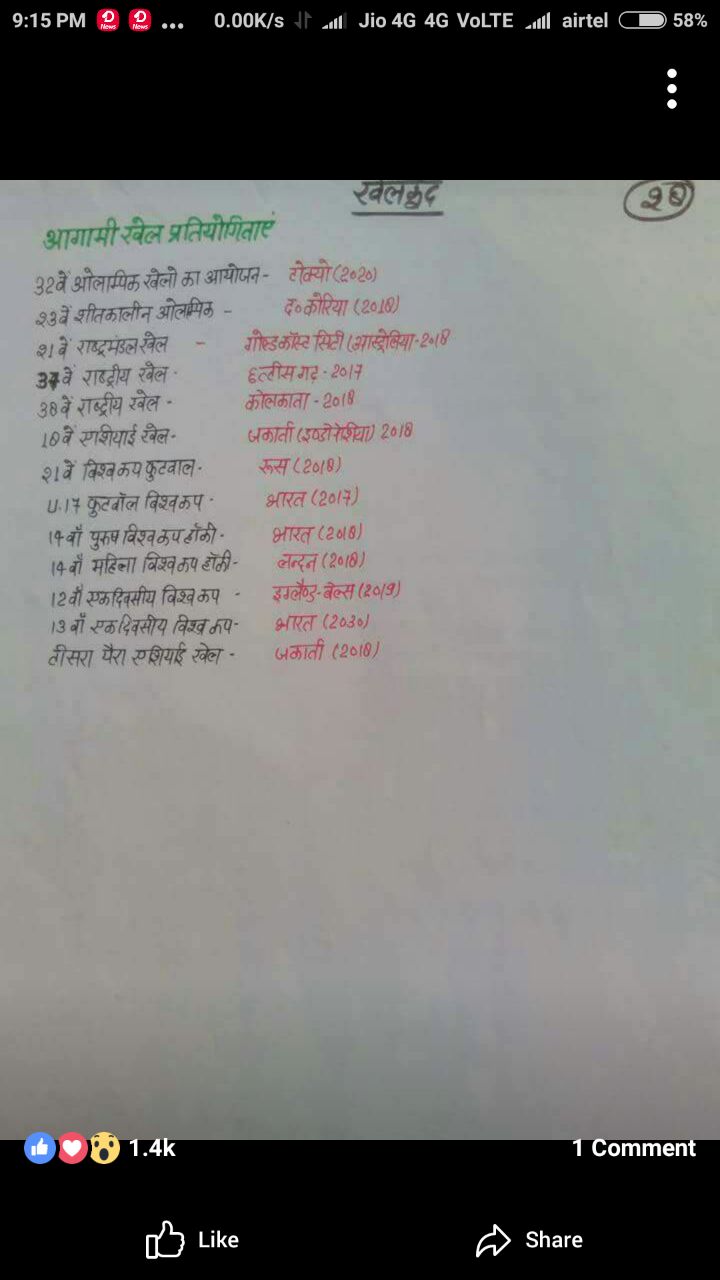 9:15 PM ... 0.00K/s Jio 4G 4G VoLTE airtel 58%
खेलकूद
२८
आगामी खेल प्रतियोगिताएं
32वें ओलाम्पिक खेलो का आयोजन - टोक्यो (2020)
२३वें शीतकालीन ओलम्पिक - द० कोरिया (2018)
२1वें राष्ट्रमंडल खेल - गोल्डकॉस्ट सिटी (आस्ट्रेलिया - 2018
37वें राष्ट्रीय खेल - छत्तीसगढ़ - 2017
38वें राष्ट्रीय खेल - कोलकाता - 2018
18वें एशियाई खेल - जकार्ता (इण्डोनेशिया) 2018
२1वें विश्वकप फुटबाल - रूस (2018)
U-17 फुटबॉल विश्वकप - भारत (2017)
14वाँ पुरुष विश्वकप हॉकी - भारत (2018)
14वाँ महिला विश्वकप हॉकी - लन्दन (2018)
12वाँ एकदिवसीय विश्वकप - इग्लैण्ड-वेल्स (2019)
13वाँ एकदिवसीय विश्वकप - भारत (2030)
तीसरा पैरा एशियाई खेल - जकार्ता (2018)
1.4k 1 Comment
Like Share